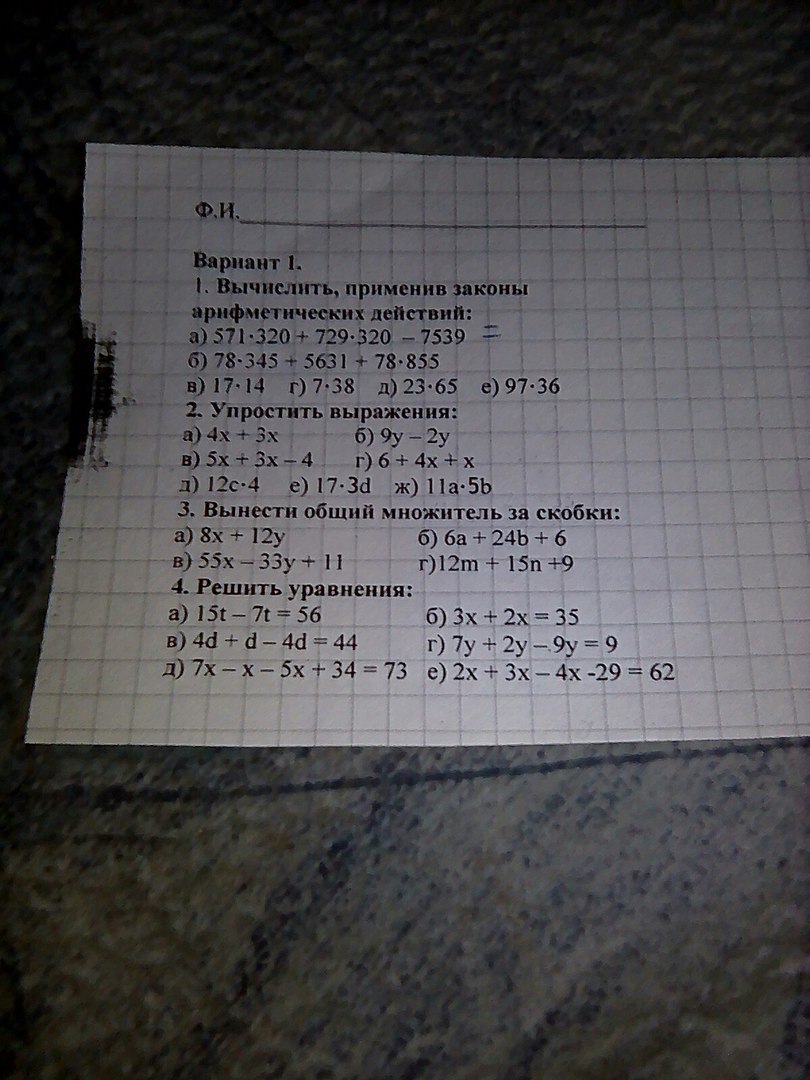 Ф.И.______________________________
Вариант 1.
1. Вычислить, применив законы
арифметических действий:
а) 571·320 + 729·320 – 7539 =
б) 78·345 + 5631 + 78·855
в) 17·14 г) 7·38 д) 23·65 е) 97·36
2. Упростить выражения:
а) 4x + 3x б) 9y – 2y
в) 5x + 3x – 4 г) 6 + 4x + x
д) 12c·4 е) 17·3d ж) 11a·5b
3. Вынести общий множитель за скобки:
а) 8x + 12y б) 6a + 24b + 6
в) 55x – 33y + 11 г)12m + 15n +9
4. Решить уравнения:
а) 15t – 7t = 56 б) 3x + 2x = 35
в) 4d + d – 4d = 44 г) 7y + 2y – 9y = 9
д) 7x – x – 5x + 34 = 73 е) 2x + 3x – 4x -29 = 62